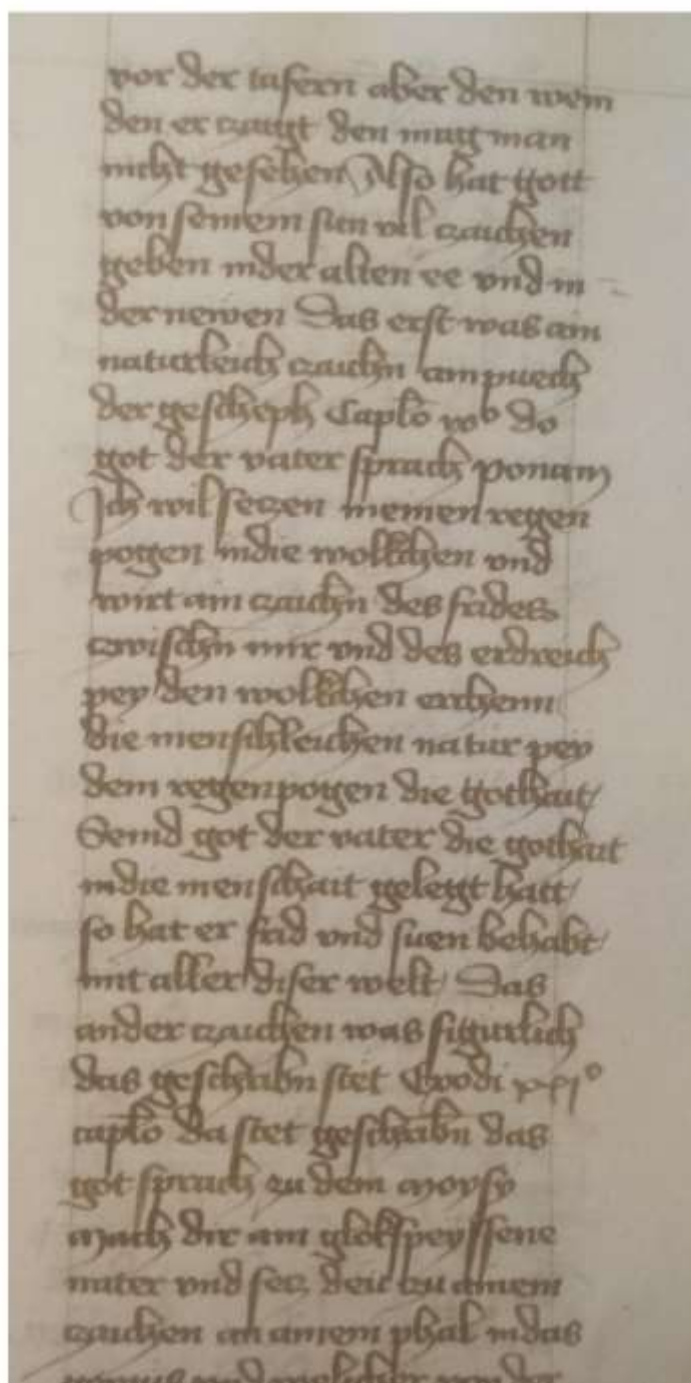 vor der tafern aber den wein
den er czaigt den mag man
nicht gesehen Also hat gott
von seinem sun vil czaichen
geben in der alten ee vnd in
der newen Das erst was ain
naturleich czaichn am puech
der gescheph Caplo do
got der vater sprach ponam
Ich wil seczen meinen regen
pogen in die wollichen vnd
wirt ain czaichn des frides
czwischn mir vnd des erdreich
pey den wollichen erchenn
die menschleichen natur pey
dem regenpogen die gothait /
Seind got der vater die gothait
in die menschait gelegt hatt /
so hat er frid vnd suen behabt /
mit aller diser welt / Das
ander czaichen was figurlich
das geschribn stet xxi°
caplo da stet geschribn das
got sprach zu dem moysy
mach dir ain
nater vnd secz die czu ainem
czaichen an ainem phal in das